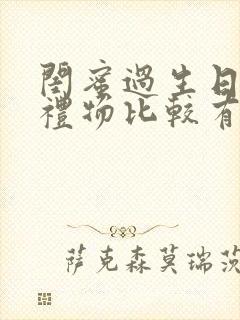 閨蜜過生日
禮物比較有
萨克森莫瑞茨